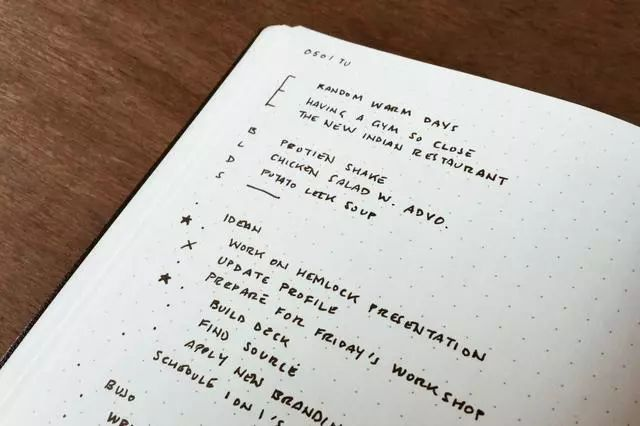 0501 TU
RANDOM WARM DAYS
HAVING A GYM SO CLOSE
THE NEW INDIAN RESTAURANT
B PROTIEN SHAKE
L CHICKEN SALAD W. ADVO.
D POTATO LEEK SOUP
S —
★ . IDEAN
× WORK ON HEMLOCK PRESENTATION
. UPDATE PROFILE
★ . PREPARE FOR FRIDAY'S WORKSHOP
. BUILD DECK
. FIND SOURCE
. APPLY NEW
. SCHEDULE 1 ON 1'S
. BUJO